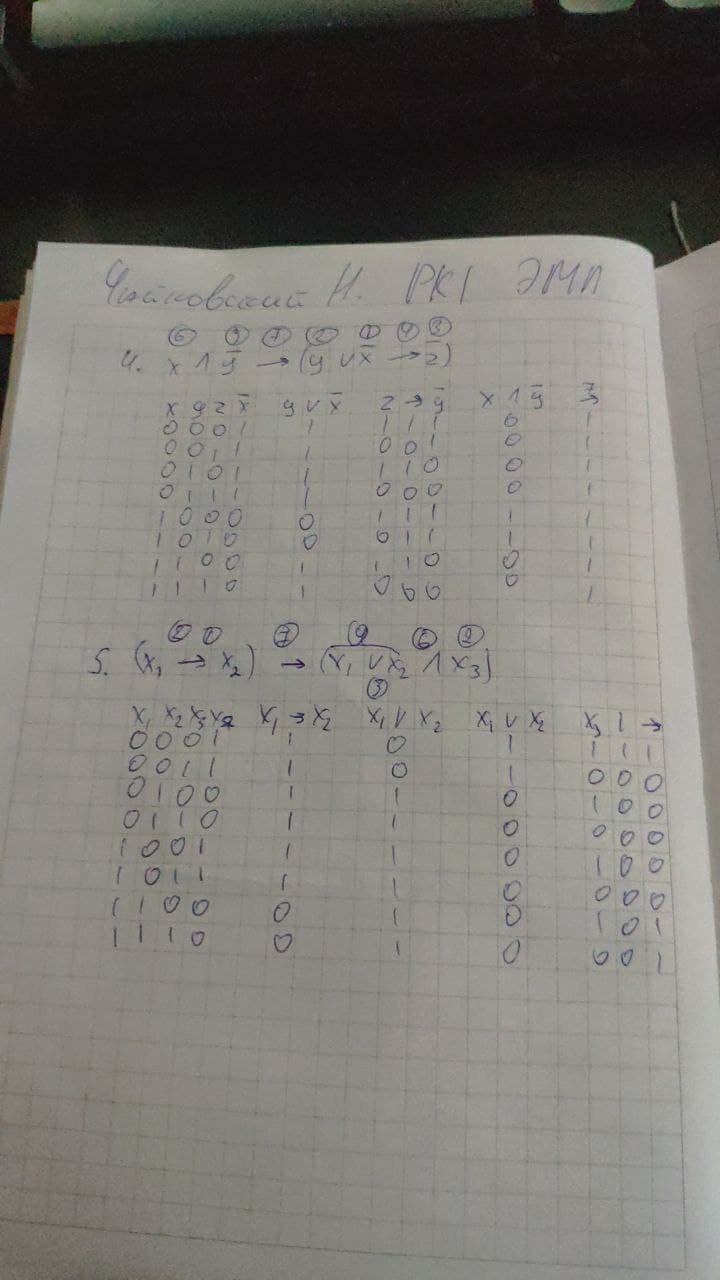 Чайковский Н. РК1 ЭМП
⑥ ③ ⑦ ② ① ④ ③
4. x ∧ ȳ → (y ∨ x̄ → z̄)
x y z x̄ y ∨ x̄ z → ȳ x ∧ ȳ 7
0 0 0 1 1 1 1 1 0 1
0 0 1 1 1 0 0 1 0 1
0 1 0 1 1 1 1 0 0 1
0 1 1 1 1 0 0 0 0 1
1 0 0 0 0 1 1 1 1 1
1 0 1 0 0 0 1 1 1 1
1 1 0 0 1 1 1 0 0 1
1 1 1 0 1 0 0 0 0 1
② ① ⑦ ④ ⑥ ②
5. (x₁ → x₂) → (x₁ ∨ x₂ ∧ x₃)
③
x₁ x₂ x₃ x₂ x₁ → x₂ x₁ ∨ x₂ x₁ ∨ x₂ x₃ 1 →
0 0 0 1 1 0 1 1 1 1
0 0 1 1 1 0 1 0 0 0
0 1 0 0 1 1 0 1 0 0
0 1 1 0 1 1 0 0 0 0
1 0 0 1 1 1 0 1 0 0
1 0 1 1 1 1 0 0 0 0
1 1 0 0 0 1 0 1 0 1
1 1 1 0 0 1 0 0 0 1